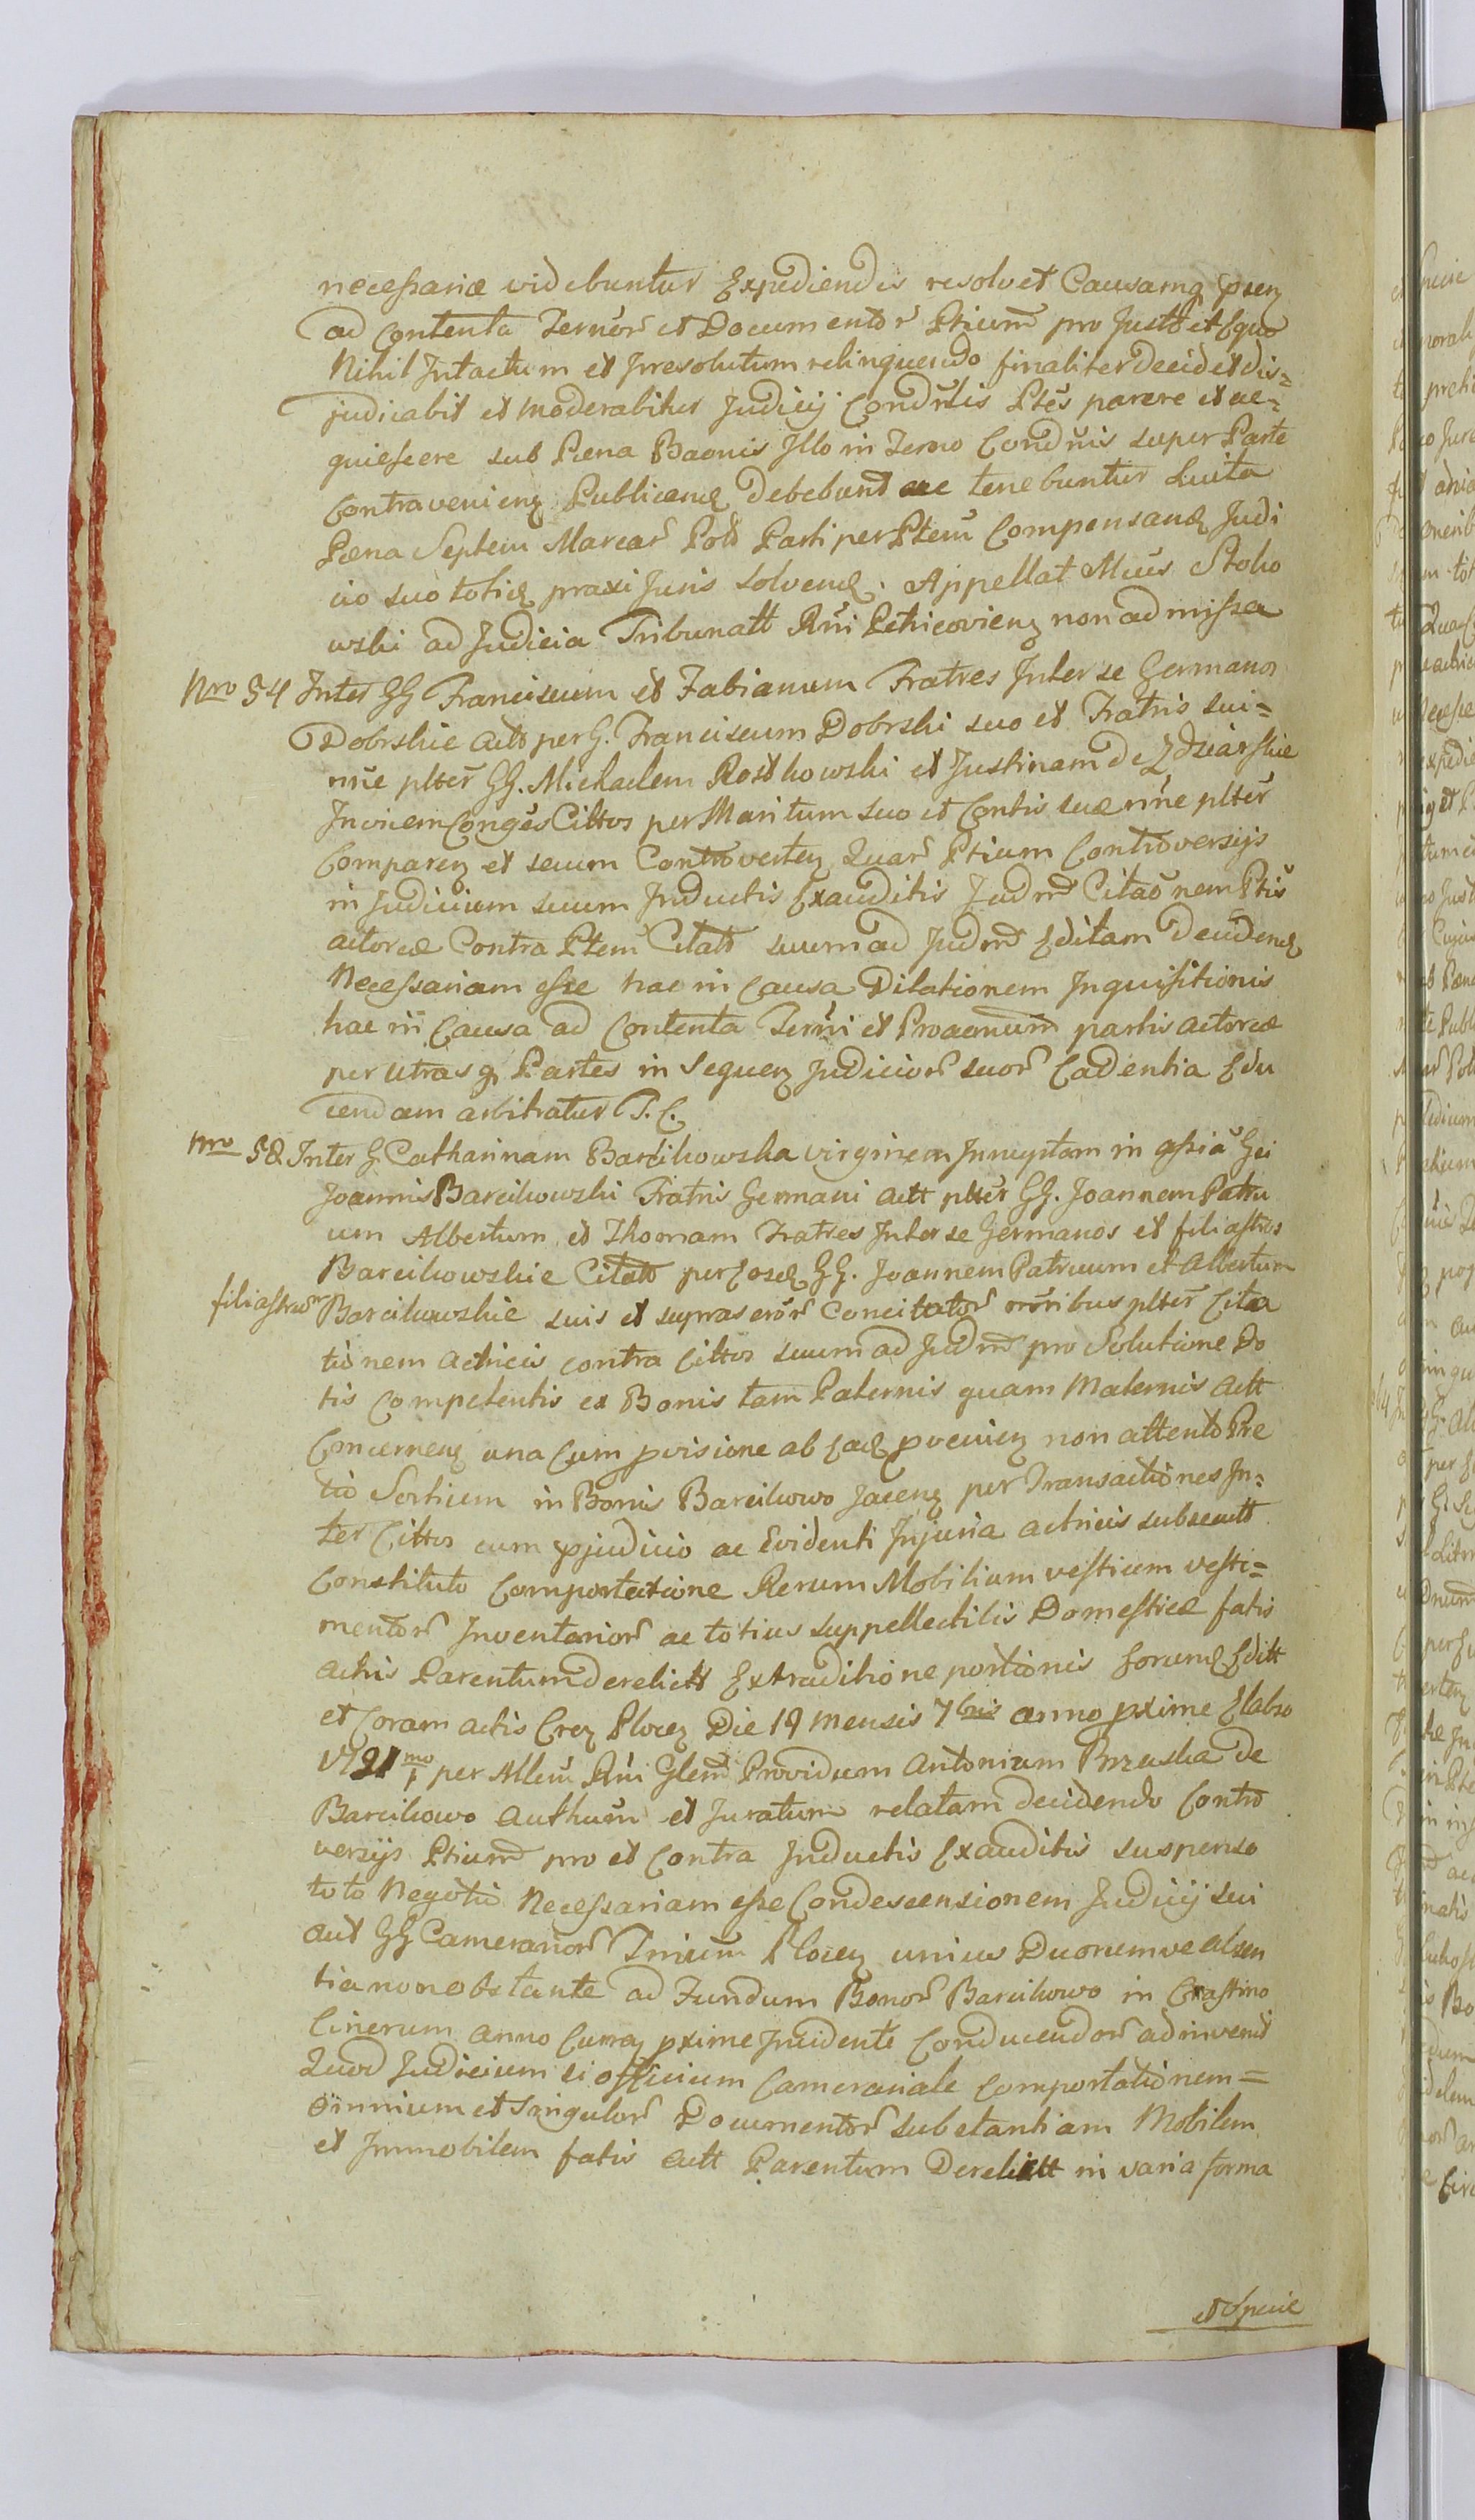 necessariæ videbuntur Expediendis resolvet Causamq̨ psenz̨
ad Contenta Termor̃ et Documentor̃ Ptium̃ pro Justo et Equo
Nihil Intactum et Irresolutum relinquendo finaliter decidet dis=
judicabit et moderabitur Judicij Condr̃tis Ptẽs parere et ac=
quiescere sub Pæna Baonis Illo in Termo Condr̃nis super Parte
Contravenienz̨ Publicand̨ debebunt ac tenebuntur Luita
Pæna Septem Marcar̃ Pold Parti per Ptem̃ Compensand̨ Judi
cio suo toties̨ praxi Juris solvend̨. Appellat Mĩis Stoko
wski ad Judicia Tribunatt Rñi Petricovienz̨ non admissa
Nro 54 Inter GG Franciscum et Fabianum Fratres Inter se Germanos
Dobrskie Actt per G. Franciscum Dobrski suo et Fratris sui=
nñe plter̃ GG. Michaelem Rostkowski et Justinam de Zdziarskie
Invicem Conges̃ Cittos per Maritum suo et Contis suæ nñe plter̃
Comparenz̨ et secum Controvertenz̨ Quar̃ Ptium Controversijs
in Judicium suum Inductis Exauditis Judm̃ Citaõnem Ptis̃
actoreæ Contra Ptem̃ Citatt suum ad Judm̃ Editam Decidend̨
Necessariam esse hac in Causa Dilationem Inquisitionis
hac in Causa ad Contenta Termi et Proacnum̃ partis actoreæ
per utrasq̨ Partes in Sequenz̨ Judicior̃ suor̃ Cadentia Edu
cendam arbitratur T. C.
Nro 58 Inter G. Catharinam Barcikowska virginem Innuptam in assia Gei
Joannis Barcikowski Fratris Germani Actt plter̃ GG. Joannem Patru
um Albertum et Thomam Fratres Inter se Germanos et filiastros
Barcikowskie Citatt per Eosd̨ GG. Joannem Patruum et Albertum
filiastrum Barcikowskie suis et supraseror̃ Concitator̃ nr̃ibus plter̃ Cita
tionem Actricis contra Cittos suum ad Judm̃ pro Solutione Do
tis Competentis ex Bonis tam Paternis quam Maternis Actt
Concernenz̨ una Cum pvisione ab Ead̨ pvenienz̨ non attento Pre
tio Sortium in Bonis Barcikowo Jacenz̨ per Transactiones In=
ter Cittos cum pjudicio ac Evidenti Injuria actricis subsecutt
Constituto Comportatione Rerum Mobilium vestium vesti=
mentor̃ Inventarior̃ ac totius suppellectilis Domesticæ fatis
Actris Parentum derelictt Extraditione portionis Eorumd̨ Editt
et Coram actis Crez̨ Plocenz̨ Die 19 mensis 7bris anno pxime Elabso
1791mo per Mllem̃ Rñi Glem̃ Providum Antonium Brzuska de
Barcikowo Authum̃ et Juratum relatam decidendo Contro
versijs Ptium̃ pro et Contra Inductis Exauditis suspenso
toto Negotio Necessariam esse Condescensionem Judicij sui
aut GG Camerarior̃ Trium̃ Plocenz̨ unius Duorumve absen
tia non obstante ad Fundum Bonor̃ Barcikowo in Crastino
Cinerum anno Currenz̨ pxime Incidente Conducendor̃ adinvenit
Quod Judicium si officium Camerariale Comportationem=
omnium et Singulor̃ Documentor̃ substantiam Mobilem
et Immobilem fatis Actt Parentum Derelictt in varia forma
et Specie